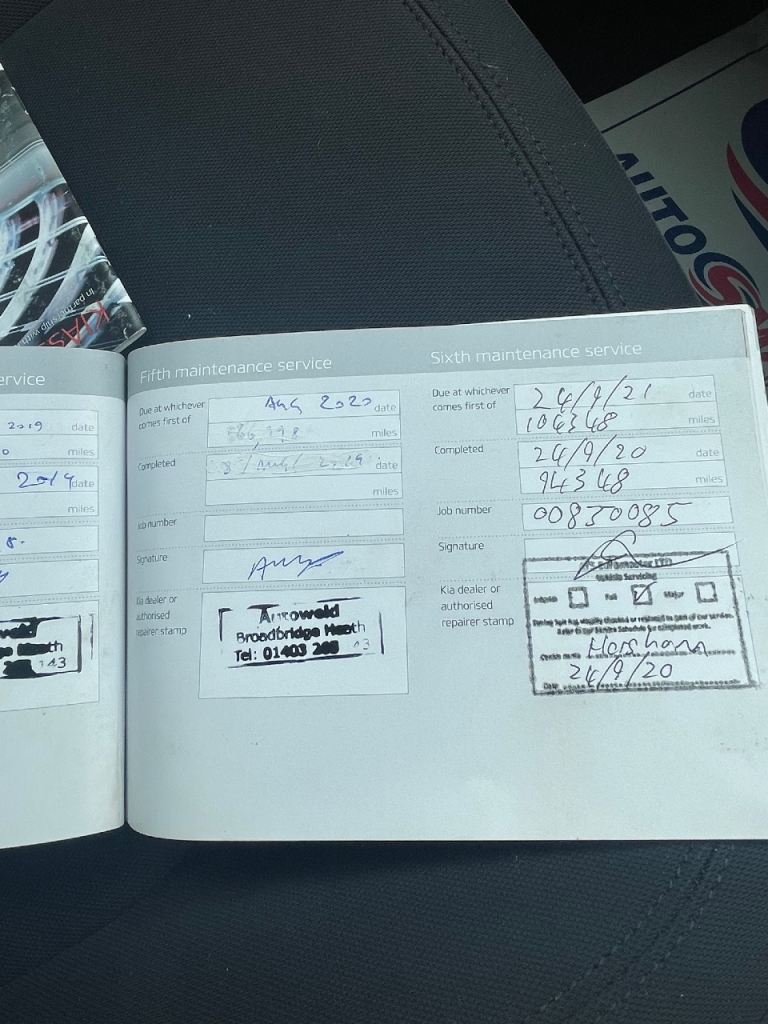 AUTO
in partnership with
KIA
ervice
2019 date
miles
2019 date
miles
Fifth maintenance service
Due at whichever
comes first of
Aug 2020 date
miles
Completed
date
miles
Job number
Signature
Kia dealer or
authorised
repairer stamp
Autoweld
Broadbridge Heath
Tel: 01403
Sixth maintenance service
Due at whichever
comes first of
24/9/21 date
104348 miles
Completed
24/9/20 date
94348 miles
Job number
00830085
Signature
Kia dealer or
authorised
repairer stamp
Vehicle Servicing
Full
Major
Horsham
Date
24/9/20